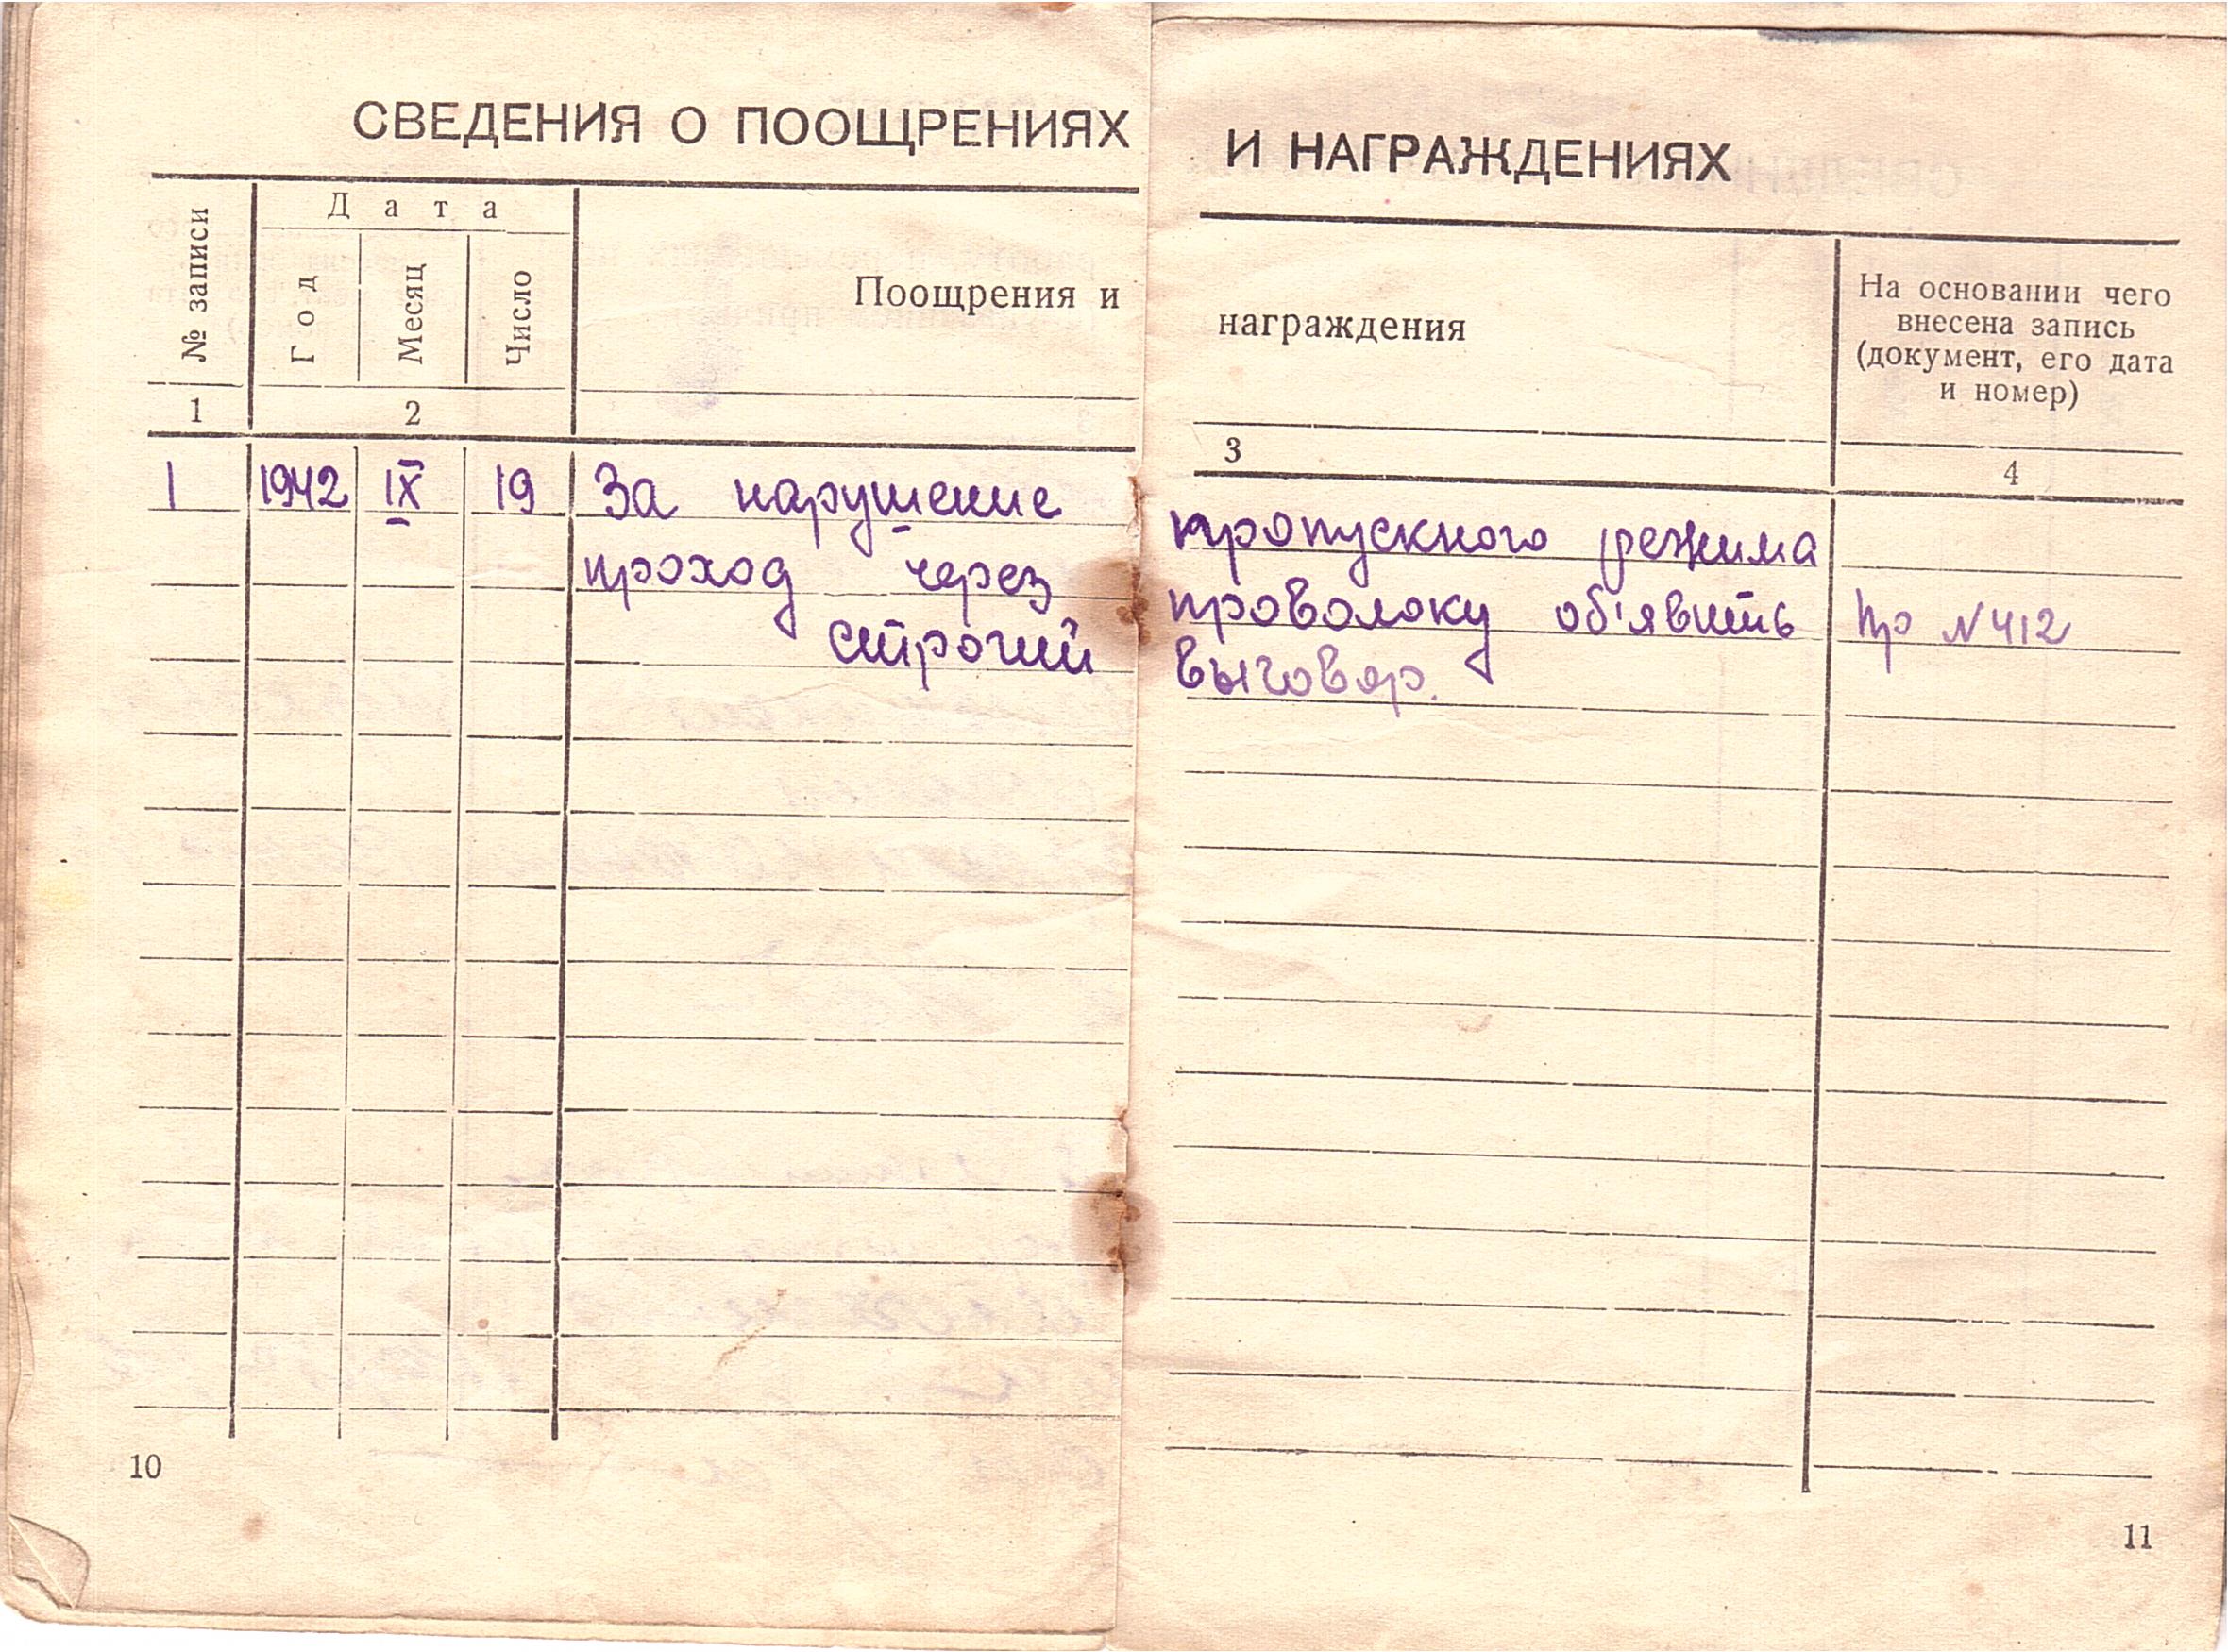 СВЕДЕНИЯ О ПООЩРЕНИЯХ И НАГРАЖДЕНИЯХ
№ записи
Дата
Год
Месяц
Число
Поощрения и награждения
На основании чего
внесена запись
(документ, его дата
и номер)
1 2 3 4
1 1942 IX 19 За нарушение пропускного режима
проход через проволоку об'явить Пр N 412
строгий выговор.
10
11